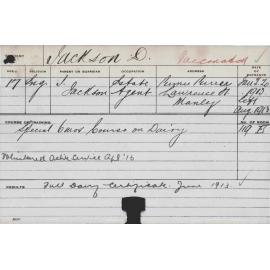 Jackson D. Vaccinated
AGE RELIGION PARENT OR GUARDIAN OCCUPATION ADDRESS DATE OF ENTRANCE
17 Eng. J. Jackson Estate Agent Lawrence St. Manly
Left Aug 1913
COURSE OBTAINING NO. OF ROOM
Special 6 mos. Course on Dairy 119 E5
Volunteered Active Service Apl '15
RESULTS Full Dairy Certificate June 1913.